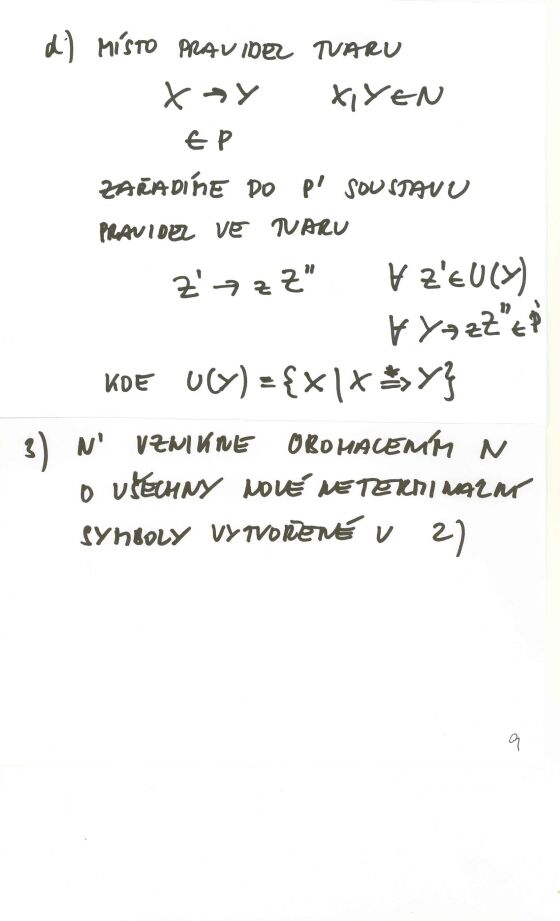 d) MÍSTO PRAVIDEL TVARU
X → Y X, Y ∈ N
∈ P
ZAŘADÍME DO P' SOUSTAVU
PRAVIDEL VE TVARU
Z' → z Z'' ∀ Z' ∈ U(Y)
∀ Y → z Z'' ∈ P'
KDE U(Y) = {X | X ⇒* Y}
3) N' VZNIKNE OBOHACENÍM N
O VŠECHNY NOVÉ NETERMINÁLNÍ
SYMBOLY VYTVOŘENÉ V 2)
9